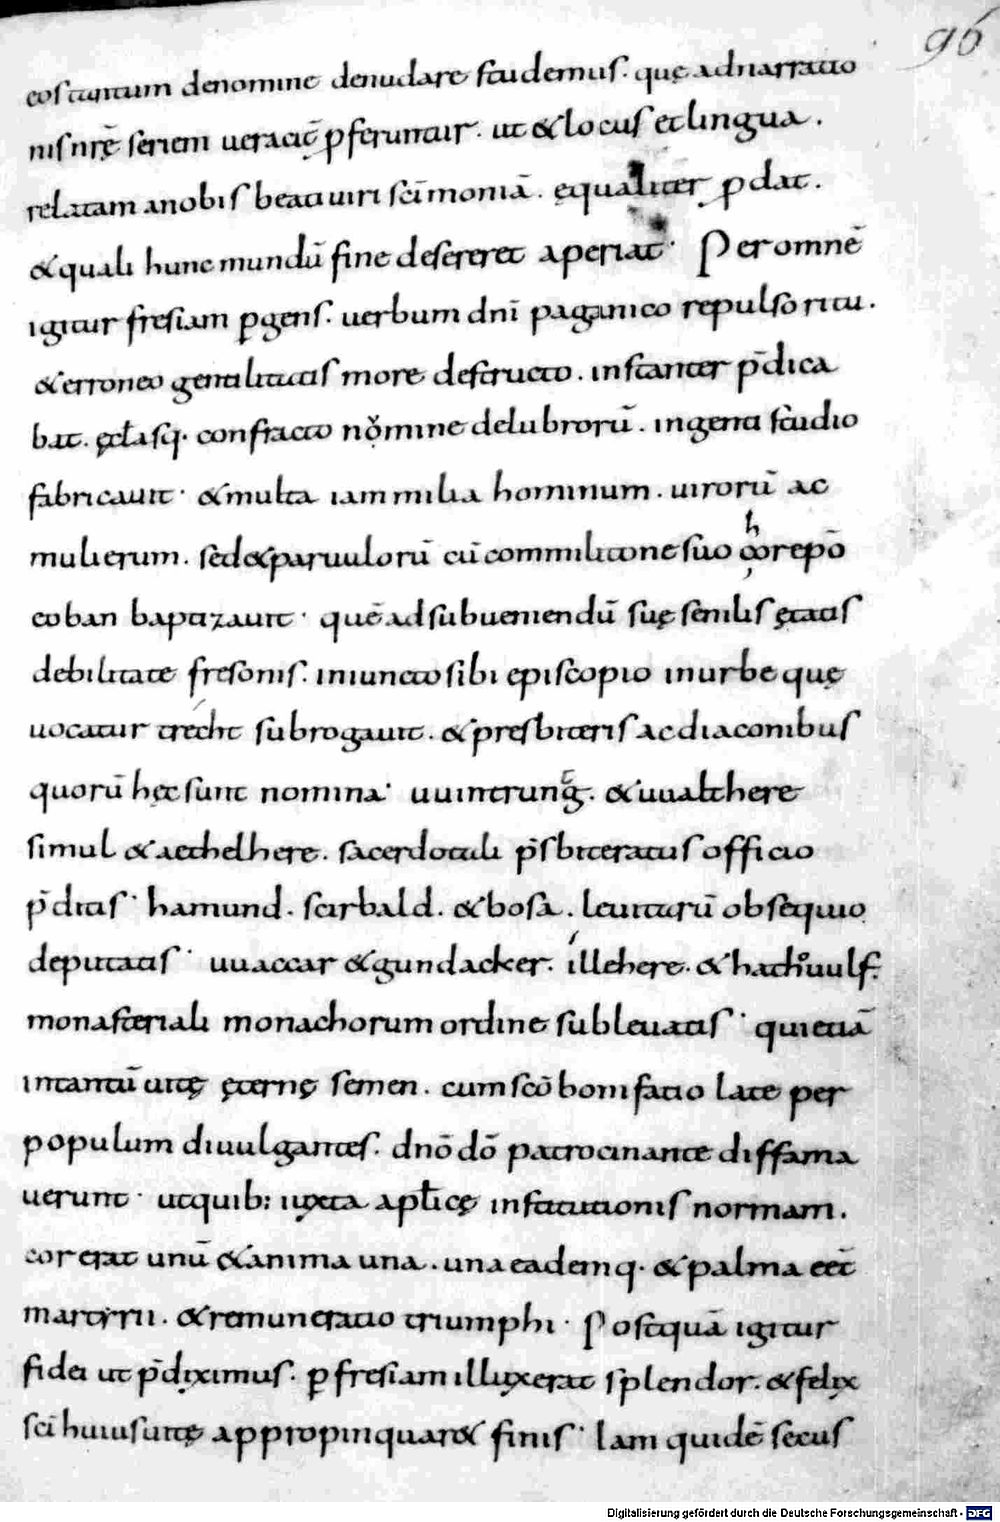 96
eos tantum denomine denudare studemus. quę adnarratio
nis nr̄ę seriem ueracit̄ ꝓferuntur. ut & locus et lingua.
relatam anobis beati uiri sc̄imoniā. ęqualiter ꝓdat.
& quali hunc mundū fine desereret aperiat̄· Per omnē
igitur fresiam ꝑgens. uerbum dn̄i paganico repulso ritu.
& erroneo gentilitatis more destructo. instanter p̄dica
bat. ęcƚasq· confracto nomine delubrorū. ingenti studio
fabricauit· & multa iam milia hominum. uirorū ac
mulierum. sed & paruulorū cū commilitone suo chorepō
eoban baptizauit· quē ad subueniendū suę senilis ętatis
debilitate fresonis. iniuncto sibi episcopio inurbe quę
uocatur trecht subrogauit. & presbiteris ac diaconibus
quorū hęc sunt nomina· uuintrung. & uualthere
simul & aethelhere. sacerdotali p̄sbiteratus officio
p̄ditis· hamund. scirbald. & bosa. leuitarū obsequio
deputatis· uuaccar & gundacker. illehere. & hathouulf.
monasteriali monachorum ordine subleuatis· qui etiā
intantū uitę ęternę semen. cum sc̄o bonifatio late per
populum diuulgantes. dn̄o dō patrocinante diffama
uerunt· ut quib: iuxta apƚicę institutionis normam.
cor erat unū & anima una. una eademq· & palma eēt
martyrii. & remuneratio triumphi· Postquā igitur
fidei ut p̄diximus. ꝑ fresiam illuxerat splendor. & felix
sc̄i huius uitę appropinquar& finis· Iam quidē secus
Digitalisierung gefördert durch die Deutsche Forschungsgemeinschaft - DFG